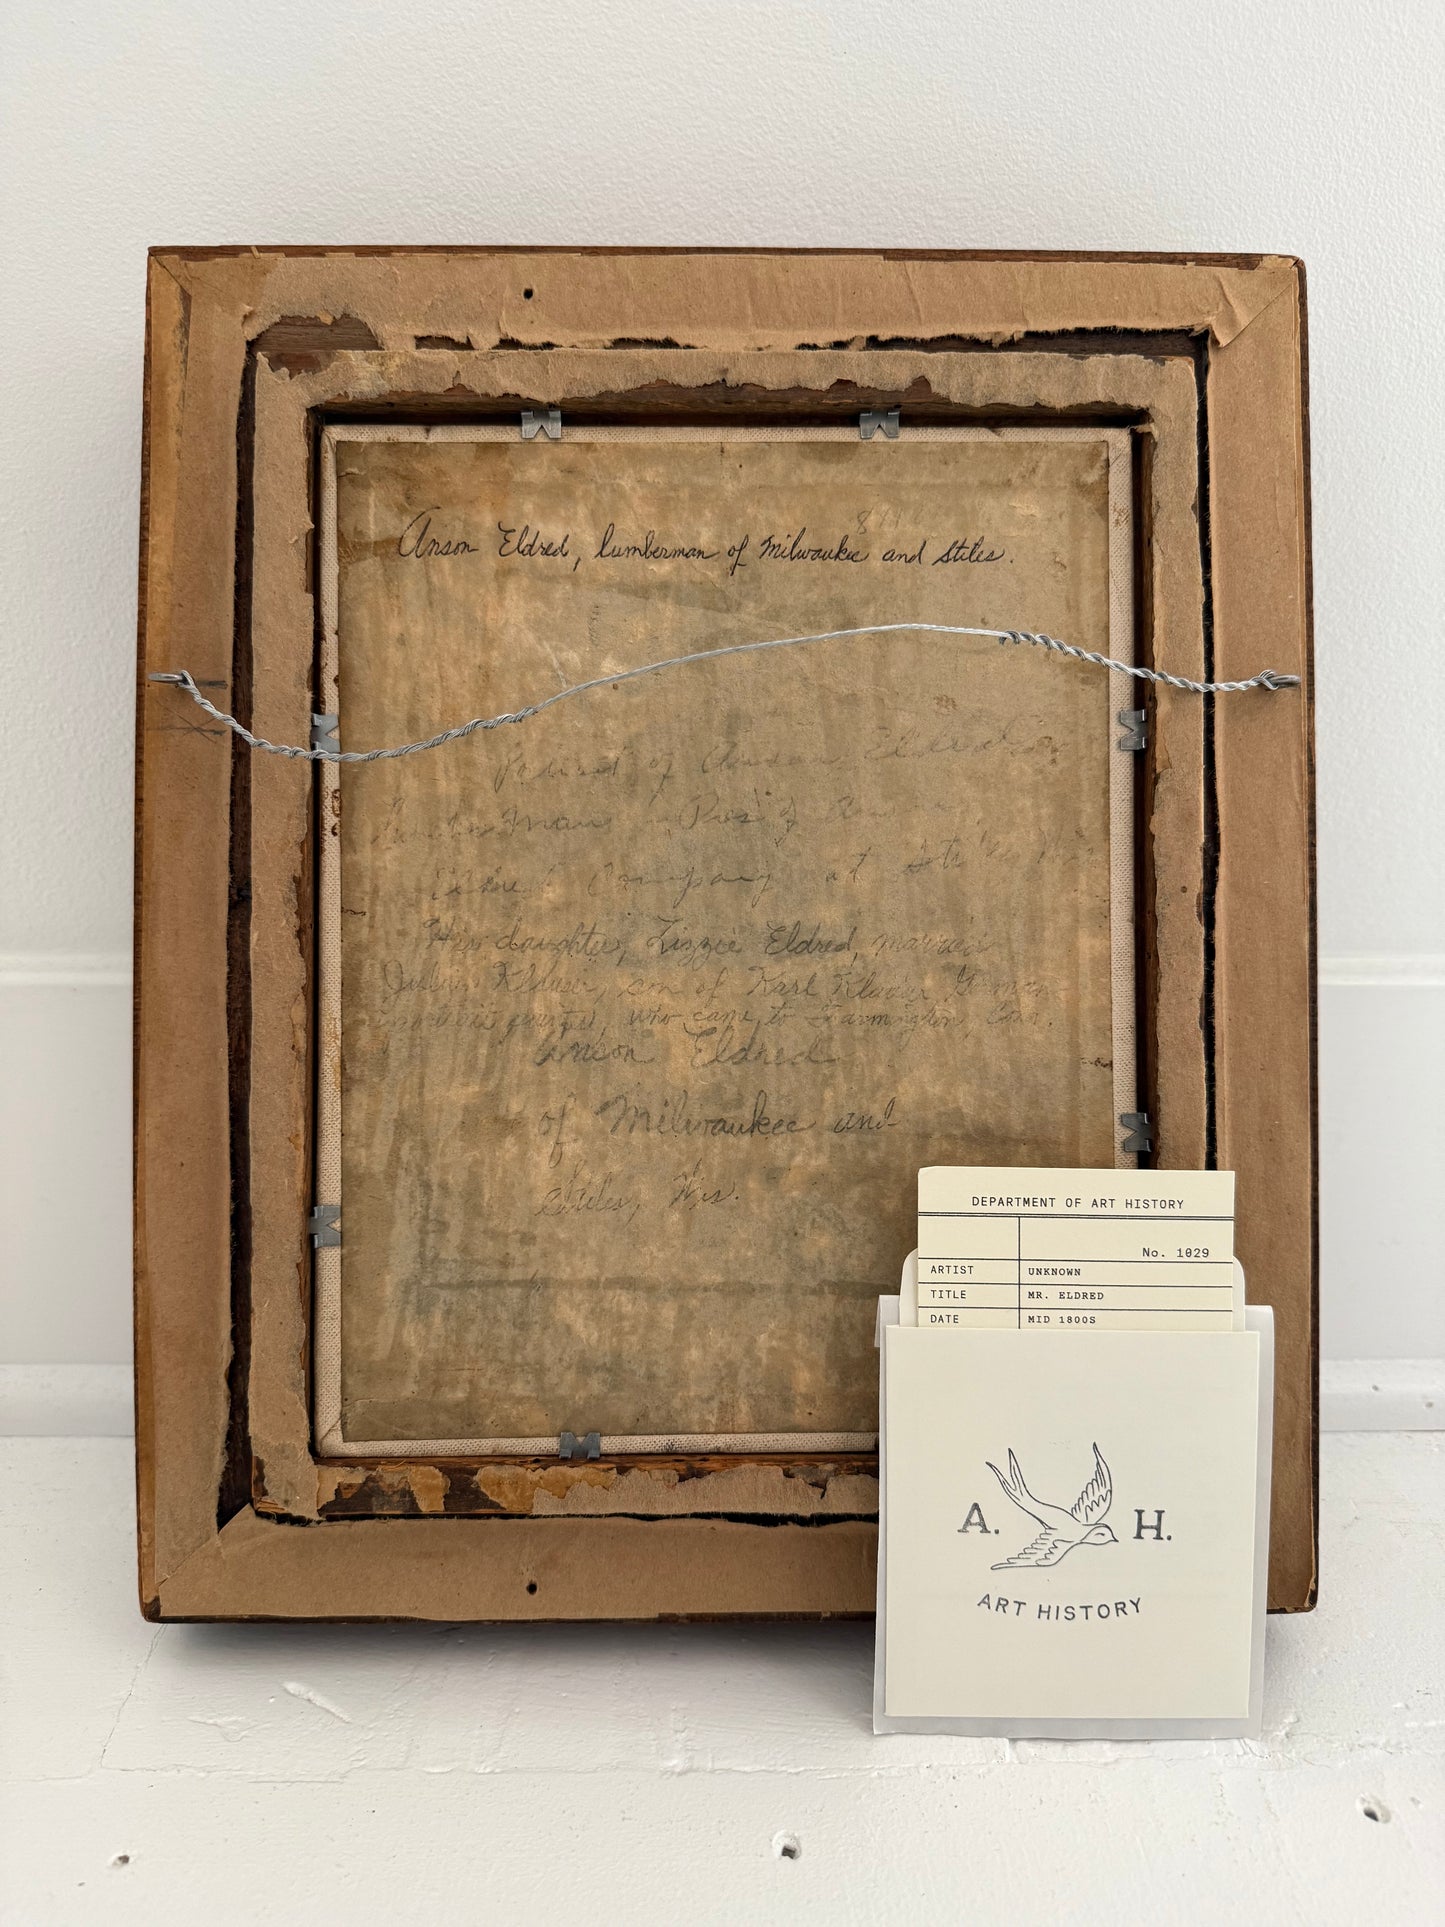 Anson Eldred, lumberman of Milwaukee and Stiles.
Portrait of Anson Eldred
Lumber Man Pres. of
Eldred Company at Stiles Wis
His daughter, Lizzie Eldred, married
Julius son of Karl German
who came to Farmington, Conn.
Anson Eldred
of Milwaukee and
Stiles, Wis.
DEPARTMENT OF ART HISTORY
No. 1029
ARTIST UNKNOWN
TITLE MR. ELDRED
DATE MID 1800S
A. H.
ART HISTORY